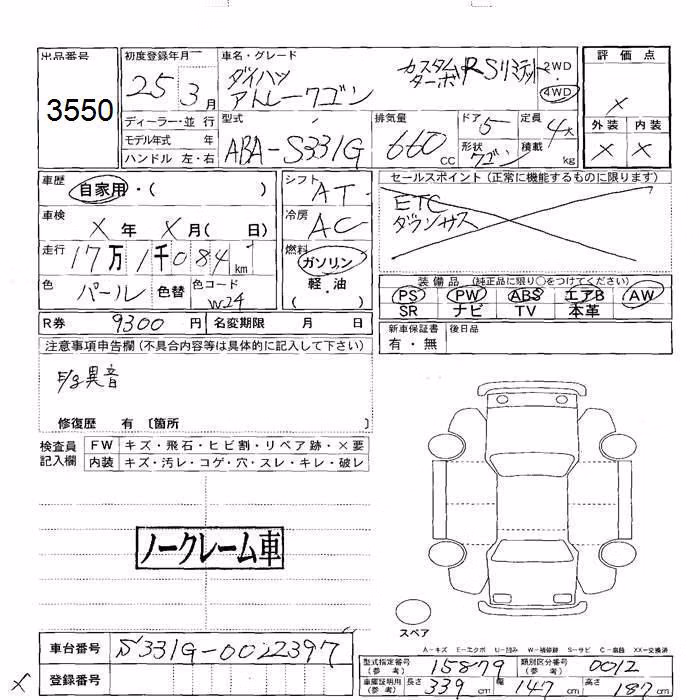 出品番号
3550
初度登録年月
25 3月
車名・グレード
ダイハツ
アトレーワゴン
カスタム
ターボRSリミテット
2WD
4WD
評価点
×
外装 内装
× ×
ディーラー・並行
モデル年式 年
ハンドル 左・右
型式
ABA-S331G
排気量
660cc
ドア 5
形状 ワゴン
定員 4人
積載 kg
車歴
自家用・( )
車検
×年 ×月( 日)
走行
17万1千084km
色
パール
色替
色コード
W24
シフト
AT
冷房
AC
燃料
ガソリン
軽・油
( )
セールスポイント(正常に機能するものに限ります)
ETC
ダウンサス
装備品(純正品に限り○をつけてください)
PS PW ABS エアB AW
SR ナビ TV 本革
R券 9300円
名変期限 月 日
新車保証書
有・無
後日品
注意事項申告欄(不具合内容等は具体的に記入して下さい)
異音
修復歴 有 〔箇所 〕
検査員
記入欄
FW キズ・飛石・ヒビ割・リペア跡・×要
内装 キズ・汚レ・コゲ・穴・スレ・キレ・破レ
ノークレーム車
スペア
A-キズ E-エクボ U-凹み W-補修跡 S-サビ C-腐蝕 XX-交換済
車台番号 S331G-0022397
登録番号
×
型式指定番号
(参考)
15879
類別区分番号
(参考)
0012
車庫証明用
(参考)
長さ 339cm 幅 147cm 高さ 187cm